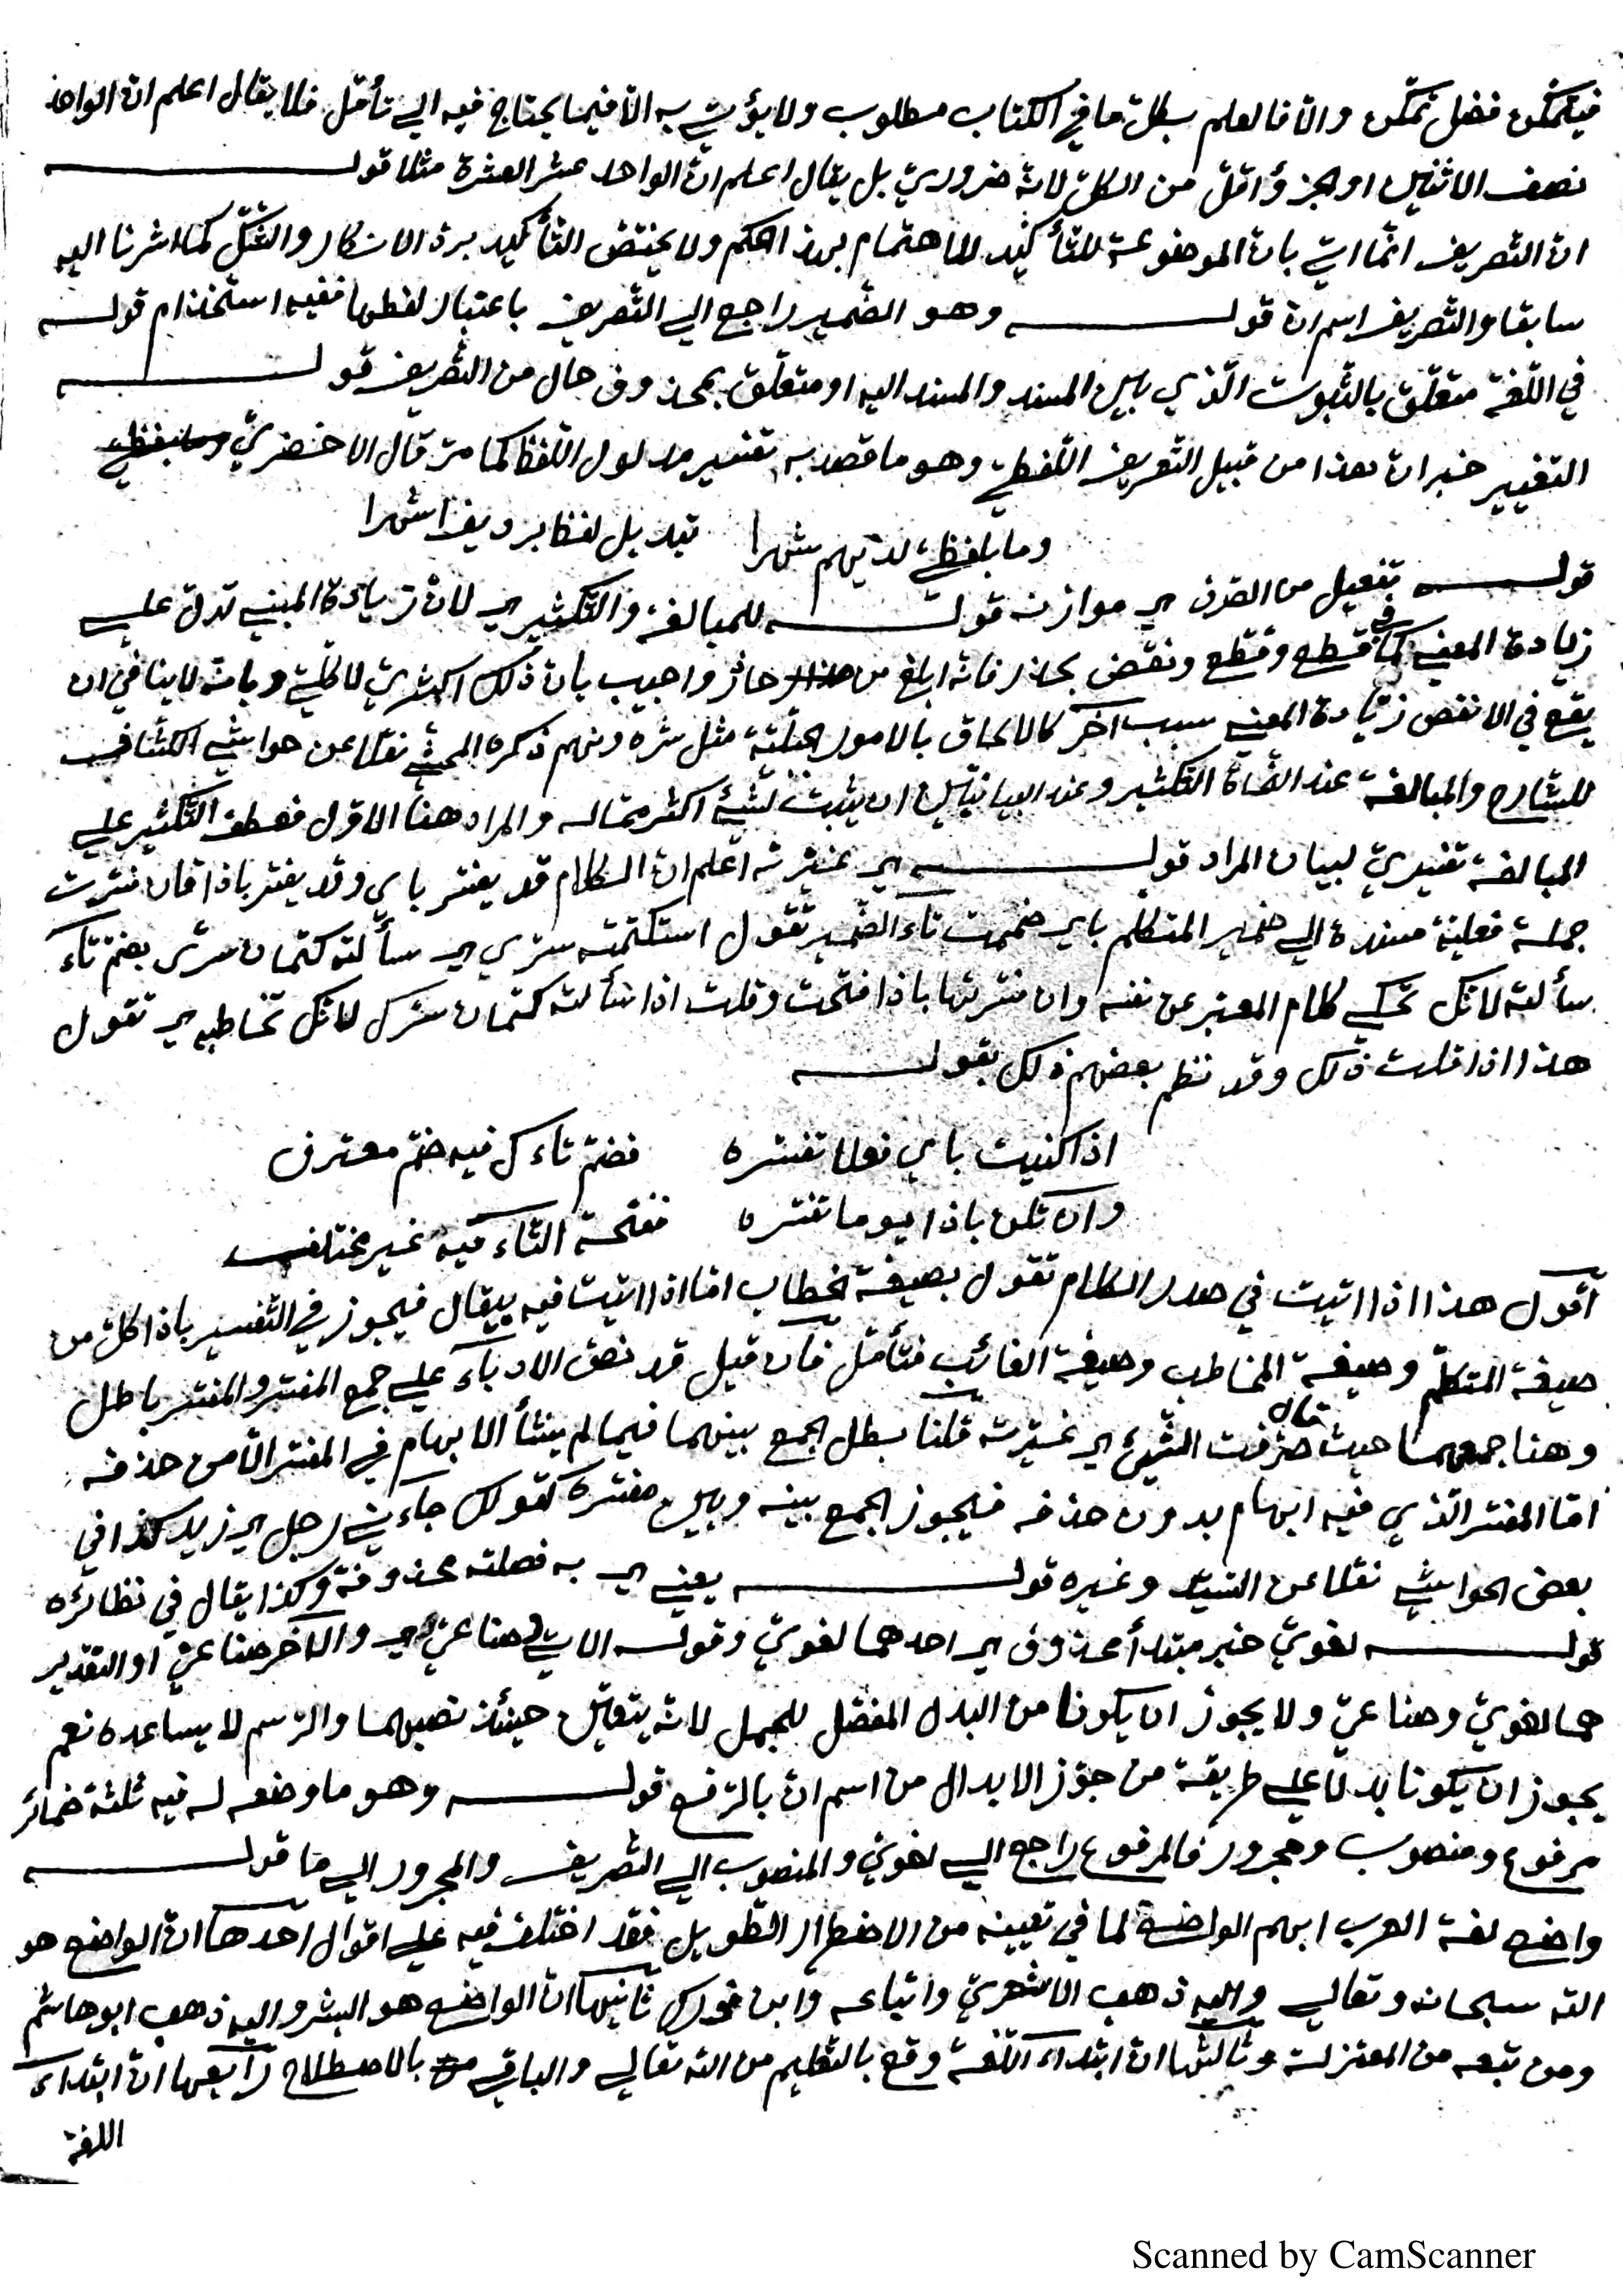 فيتمكّن فضل تمكّن والّا فالعلم بكلّ ما في الكتاب مطلوب ولا يؤتي به الّا فيما يحتاج فيه الي تأمّل فلا يقال اعلم انّ الواحد
نصف الاثنين او الجزؤ اقلّ من الكلّ لانّه ضروريّ بل يقال اعلم انّ الواحد عشر العشرة مثلا قولـــه
انّ التصريف انّما اتي بانّ الموضوعة للتأكيد للاهتمام بهذا الحكم ولا يختصّ التأكيد بردّ الانكار والشكّ كما اشرنا اليه
سابقا والتصريف اسم انّ قولـــه وهو الضمير راجع الي التصريف باعتبار لفظها ففيه استخدام قولـــه
في اللّغة متعلّق بالثبوت الّذي بين المسند والمسند اليه او متعلّق بمحذوف حال من التصريف قولـــه
التغيير خبر انّ هذا من قبيل التعريف اللّفظيّ وهو ما قصد به تفسير مدلول اللّفظ كما مرّ قال الاخضريّ
وما بلفظيّ لديهم شهرا تبديل لفظ برديف اشهرا
قولـــه تفعيل من الصرف اي موازنه قولـــه للمبالغة والتكثير اي لانّ زيادة المبني تدلّ علي
زيادة المعني كما في قطع وقطّع ونقض بحذر فانّه ابلغ من حاذر واجيب بانّ ذلك اكثريّ لا كلّيّ وبانّه لا ينافي ان
يقع في الانقص زيادة المعني بسبب آخر كالالحاق بالامور الجبلّيّة مثل شره ونهم ذكره المحشّي نقلا عن حواشي الكشّاف
للشارح والمبالغة عند النّحاة التكثير وعند البيانيّين ان يثبت لشيء اكثر ممّا له والمراد هنا الاوّل فعطف التكثير علي
المبالغة تفسيريّ لبيان المراد قولـــه اي غيّرته اعلم انّ الكلام قد يفسّر باي وقد يفسّر باذا فان فسّرت
جملة فعليّة مسندة الي ضمير المتكلّم باي ضممت تاء الضمير تقول استكتمته سرّي اي سألته كتمان سرّى بضمّ تاء
سألته لانّك تحكي كلام المعبّر عن نفسه وان فسّرتها باذا فتحت وقلت اذا سألته كتمان سرّك لانّك تخاطبه اي تقول
هذا اذا قلت ذلك وقد نظم بعضهم ذلك بقولـــه
اذا كنيت باي فعلا تفسّره فضمّ تاءك فيه ضمّ معترف
وان تكن باذا يوما تفسّره ففتحة التاء فيه غير مختلف
أقول هذا اذا اتيت في صدر الكلام تقول بصيغة الخطاب امّا اذا اتيت فيه بيقال فيجوز في التفسير باذا كلّ من
صيغة المتكلّم وصيغة المخاطب وصيغة الغائب فتأمّل فان قيل قد نصّ الادباء علي جمع المفسّر والمفسّر باطل
وهنا جمعهما حيث قال صرّفت الشيء اي غيّرته قلنا بطل الجمع بينهما فيما لم ينشأ الابهام في المفسّر الّا من حذفه
امّا المفسّر الّذي فيه ابهام بدون حذفه فيجوز الجمع بينه وبين مفسّره كقولك جاءني رجل اي زيد كذا في
بعض الحواشي نقلا عن السّيّد وغيره قولـــه يعني اي به فصلته محذوفة وكذا يقال في نظائره
قولـــه لغويّ خبر مبتدأ محذوف اي احدهما لغويّ وقولـــه الاتي وصناعيّ اي والآخر صناعيّ او التقدير
هما لغويّ وصناعيّ ولا يجوز ان يكونا من البدل المفصّل للمجمل لانّه يتعيّن حينئذ نصبهما والرّسم لا يساعده نعم
يجوز ان يكونا بدلا علي طريقة من جوّز الابدال من اسم انّ بالرّفع قولـــه وهو ما وضعه له فيه ثلثة ضمائر
مرفوع ومنصوب ومجرور فالمرفوع راجع الي لغويّ والمنصوب الي التصريف والمجرور الي ما قولـــه
واضع لغة العرب ابهم الواضع لما في تعيينه من الاضطراب الطّويل فقد اختلف فيه علي اقوال احدها انّ الواضع هو
الله سبحانه وتعالي واليه ذهب الاشعريّ واتباعه وابن فورك ثانيها انّ الواضع هو البشر واليه ذهب ابو هاشم
ومن تبعه من المعتزلة وثالثها انّ ابتداء اللّغة وقع بالتعليم من الله تعالي والباقي بالاصطلاح رابعها انّ ابتداء
اللغة
Scanned by CamScanner